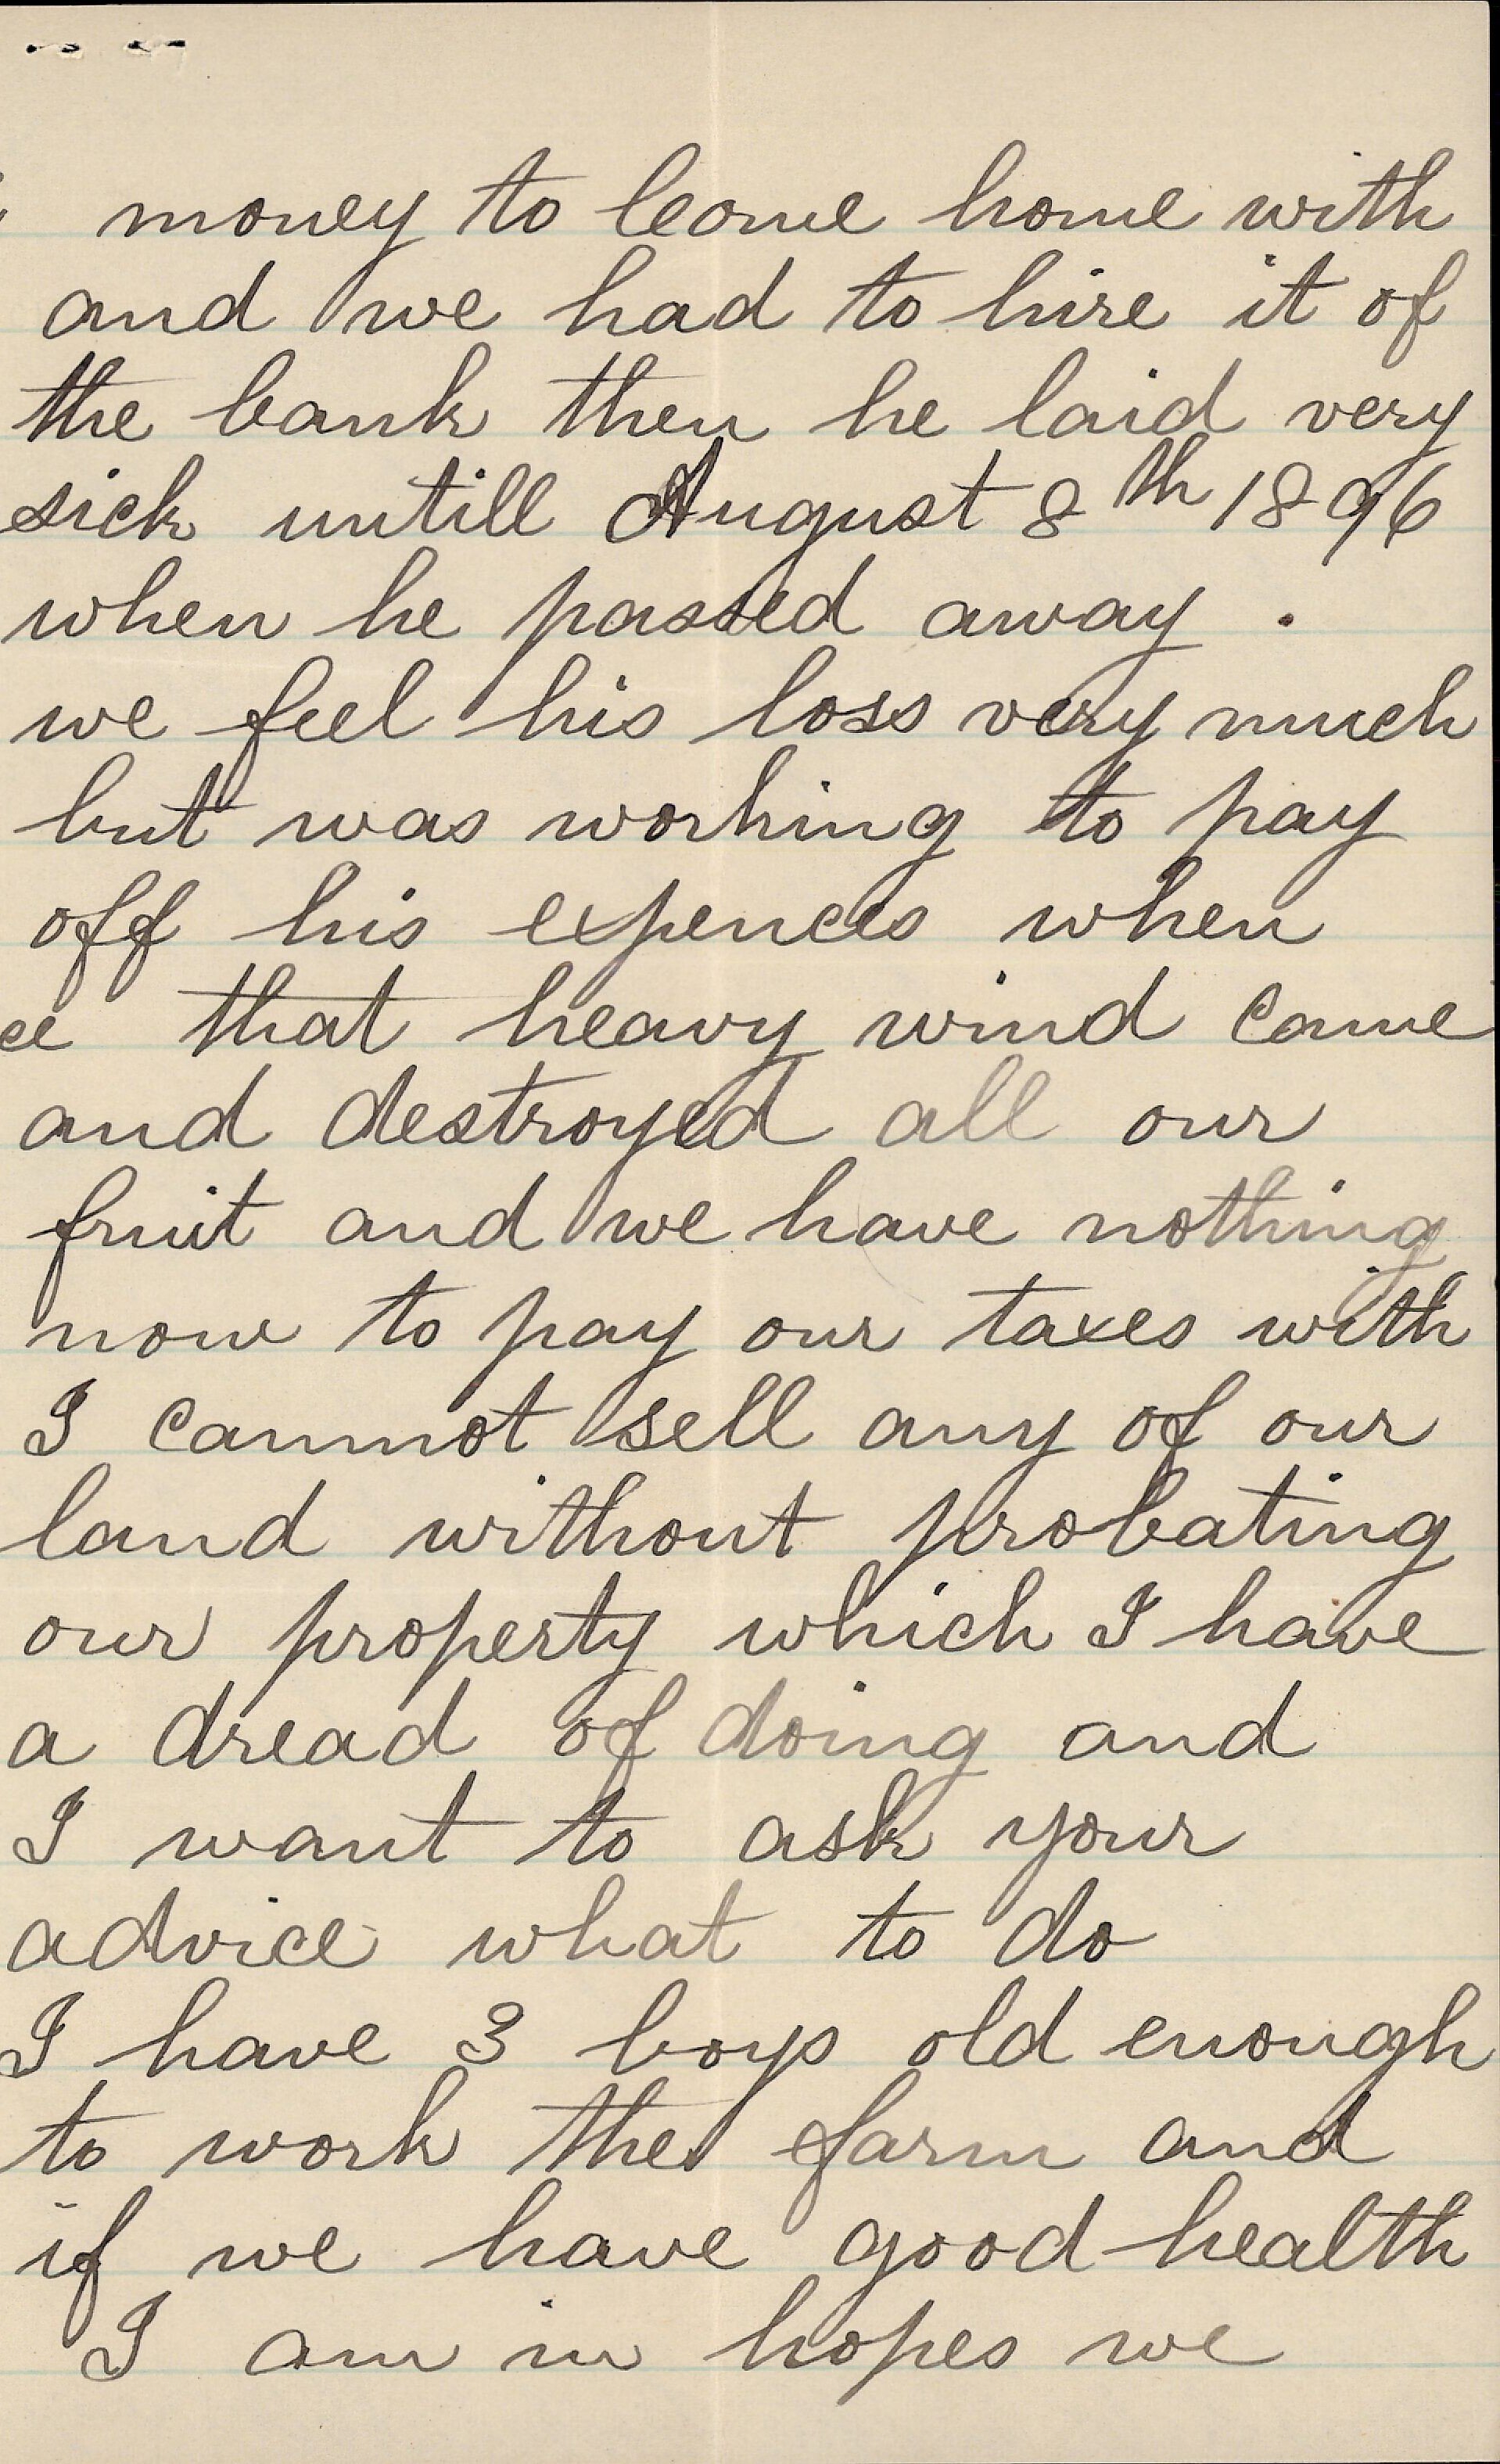 money to come home with
and we had to hire it of
the bank then he laid very
sick untill August 8th 1896
when he passed away .
we feel his loss very much
but was working to pay
off his expences when
that heavy wind came
and destroyed all our
fruit and we have nothing
now to pay our taxes with
I cannot sell any of our
land without probating
our property which I have
a dread of doing and
I want to ask your
advice what to do
I have 3 boys old enough
to work the farm and
if we have good health
I am in hopes we